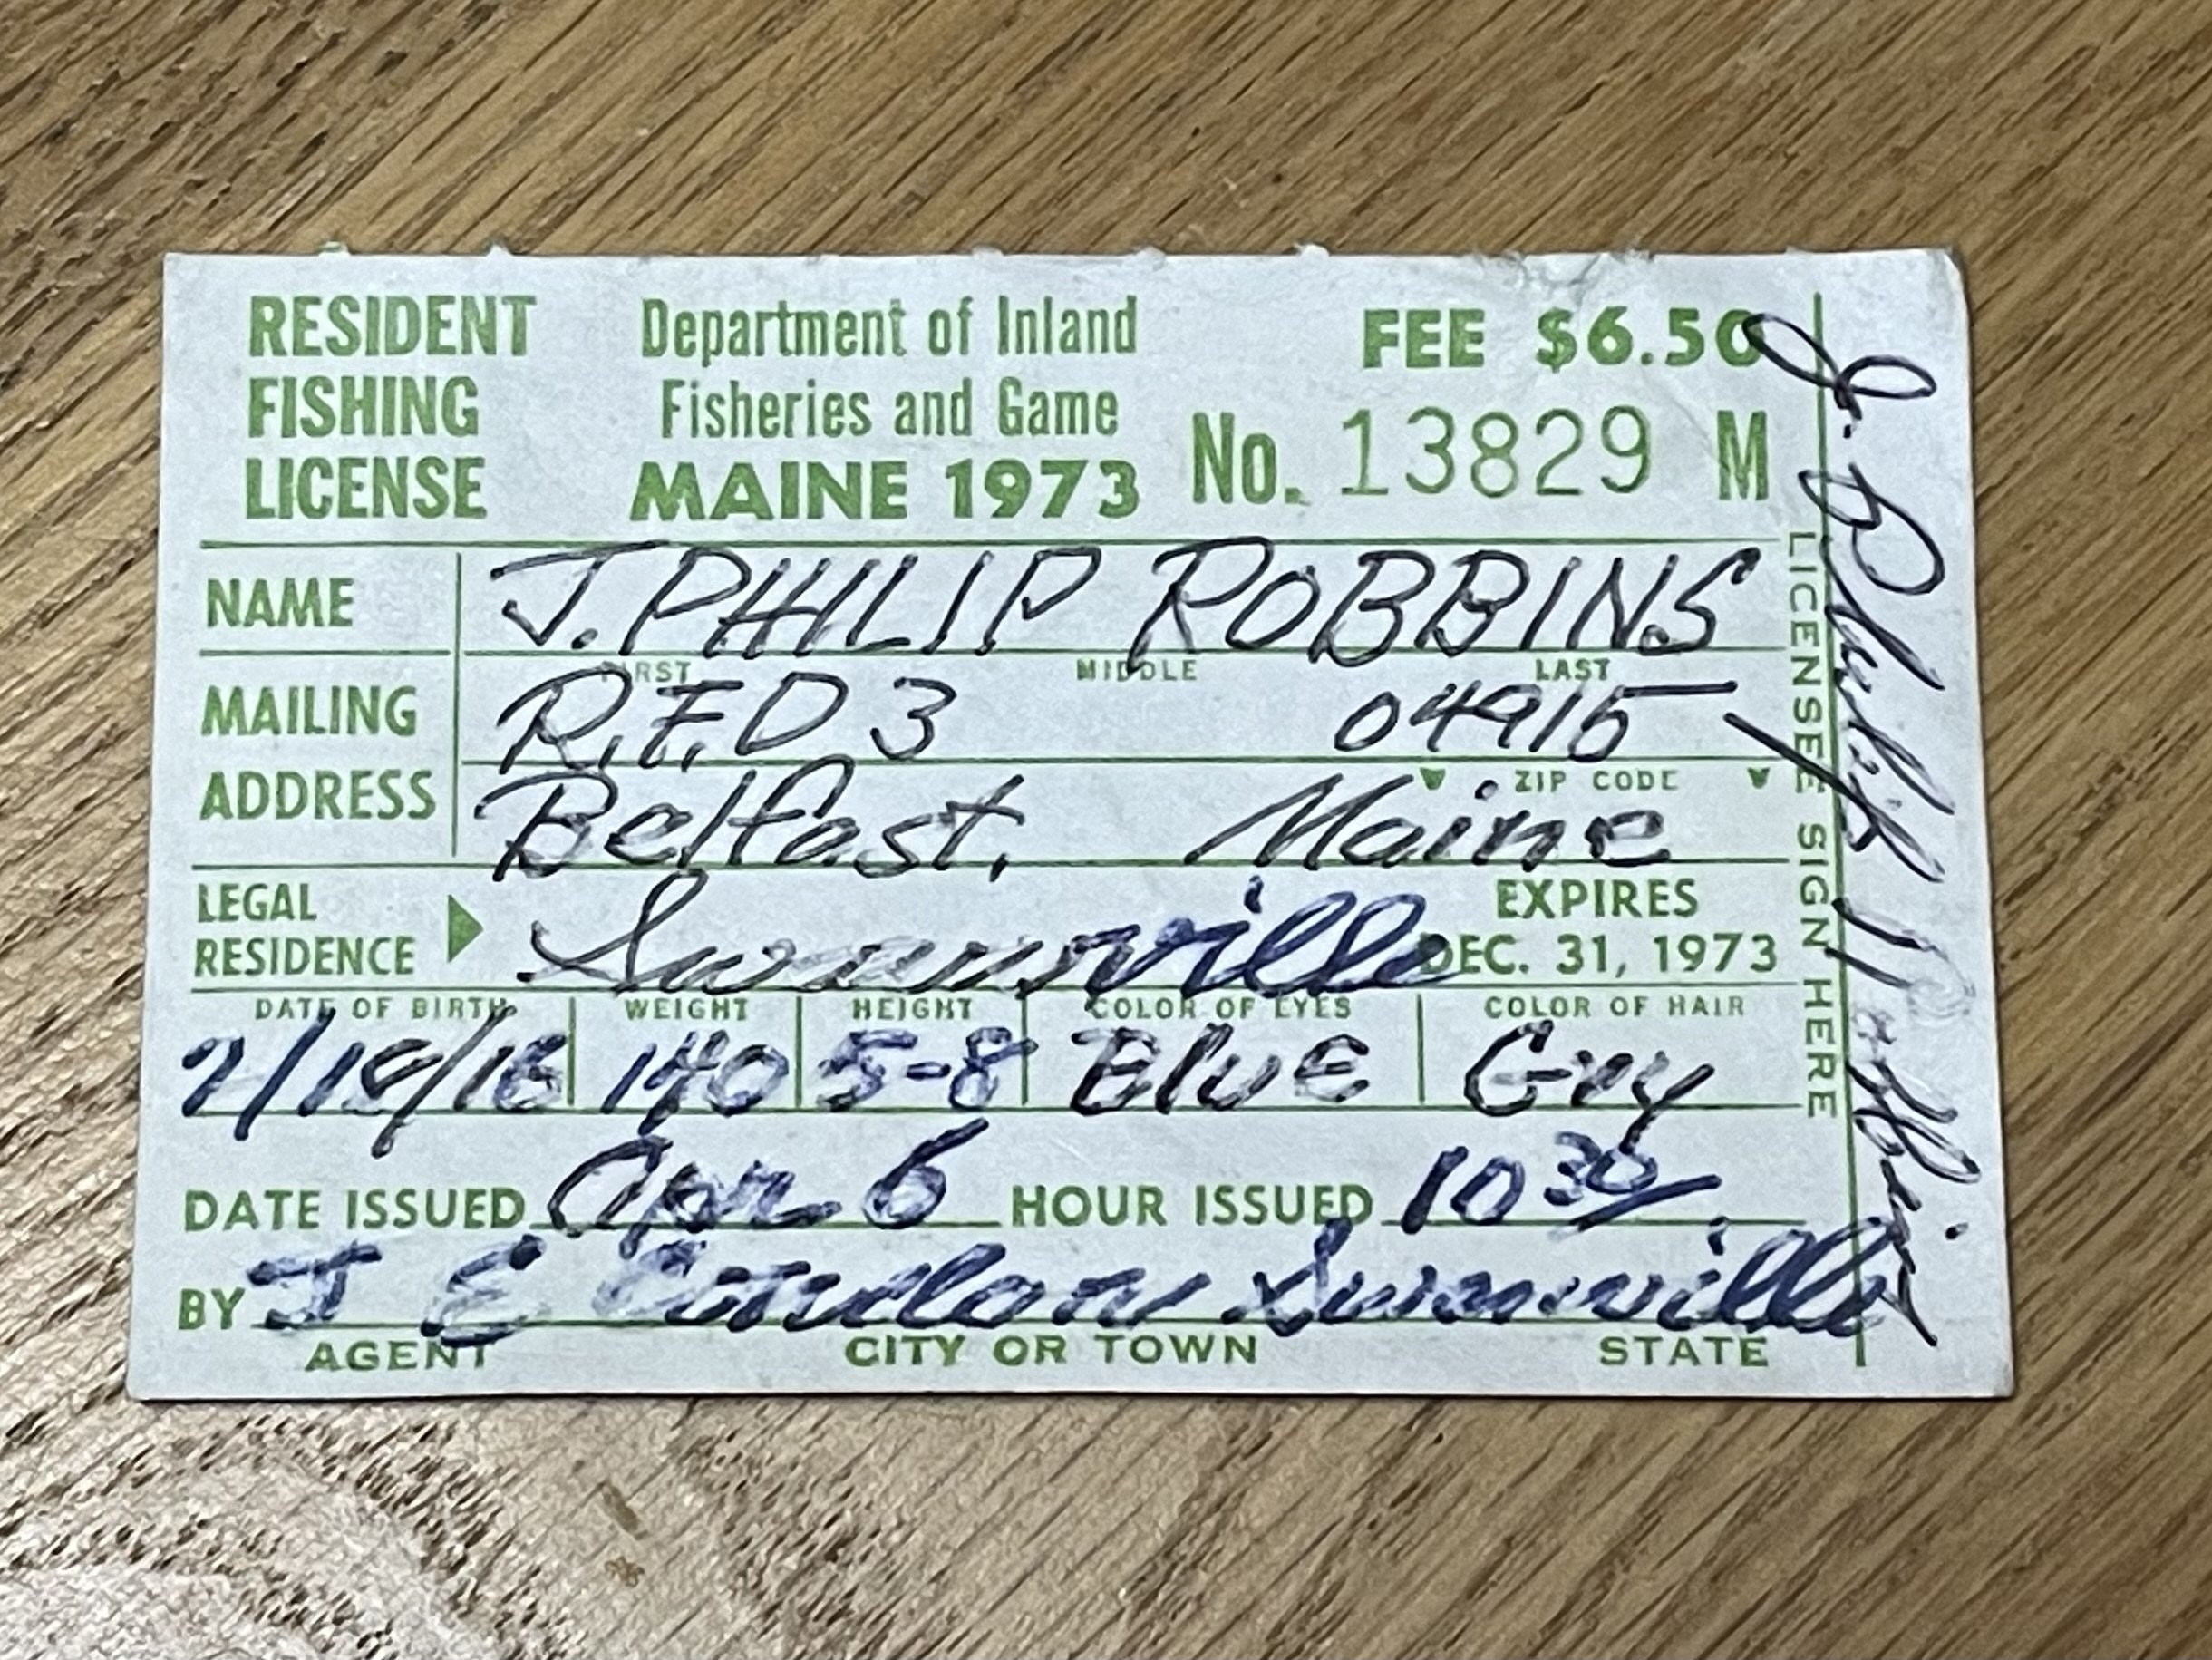 RESIDENT FISHING LICENSE
Department of Inland Fisheries and Game
MAINE 1973
FEE $6.50
No. 13829 M
NAME J. PHILIP ROBBINS
FIRST MIDDLE LAST
MAILING ADDRESS
R.F.D. 3 04915
ZIP CODE
Belfast, Maine
LEGAL RESIDENCE Swanville
EXPIRES DEC. 31, 1973
DATE OF BIRTH WEIGHT HEIGHT COLOR OF EYES COLOR OF HAIR
140 5-8 Blue Gry
DATE ISSUED Apr 6 HOUR ISSUED 10 30
BY J E Swanville
AGENT CITY OR TOWN STATE
LICENSEE SIGN HERE
J. Philip Robbins